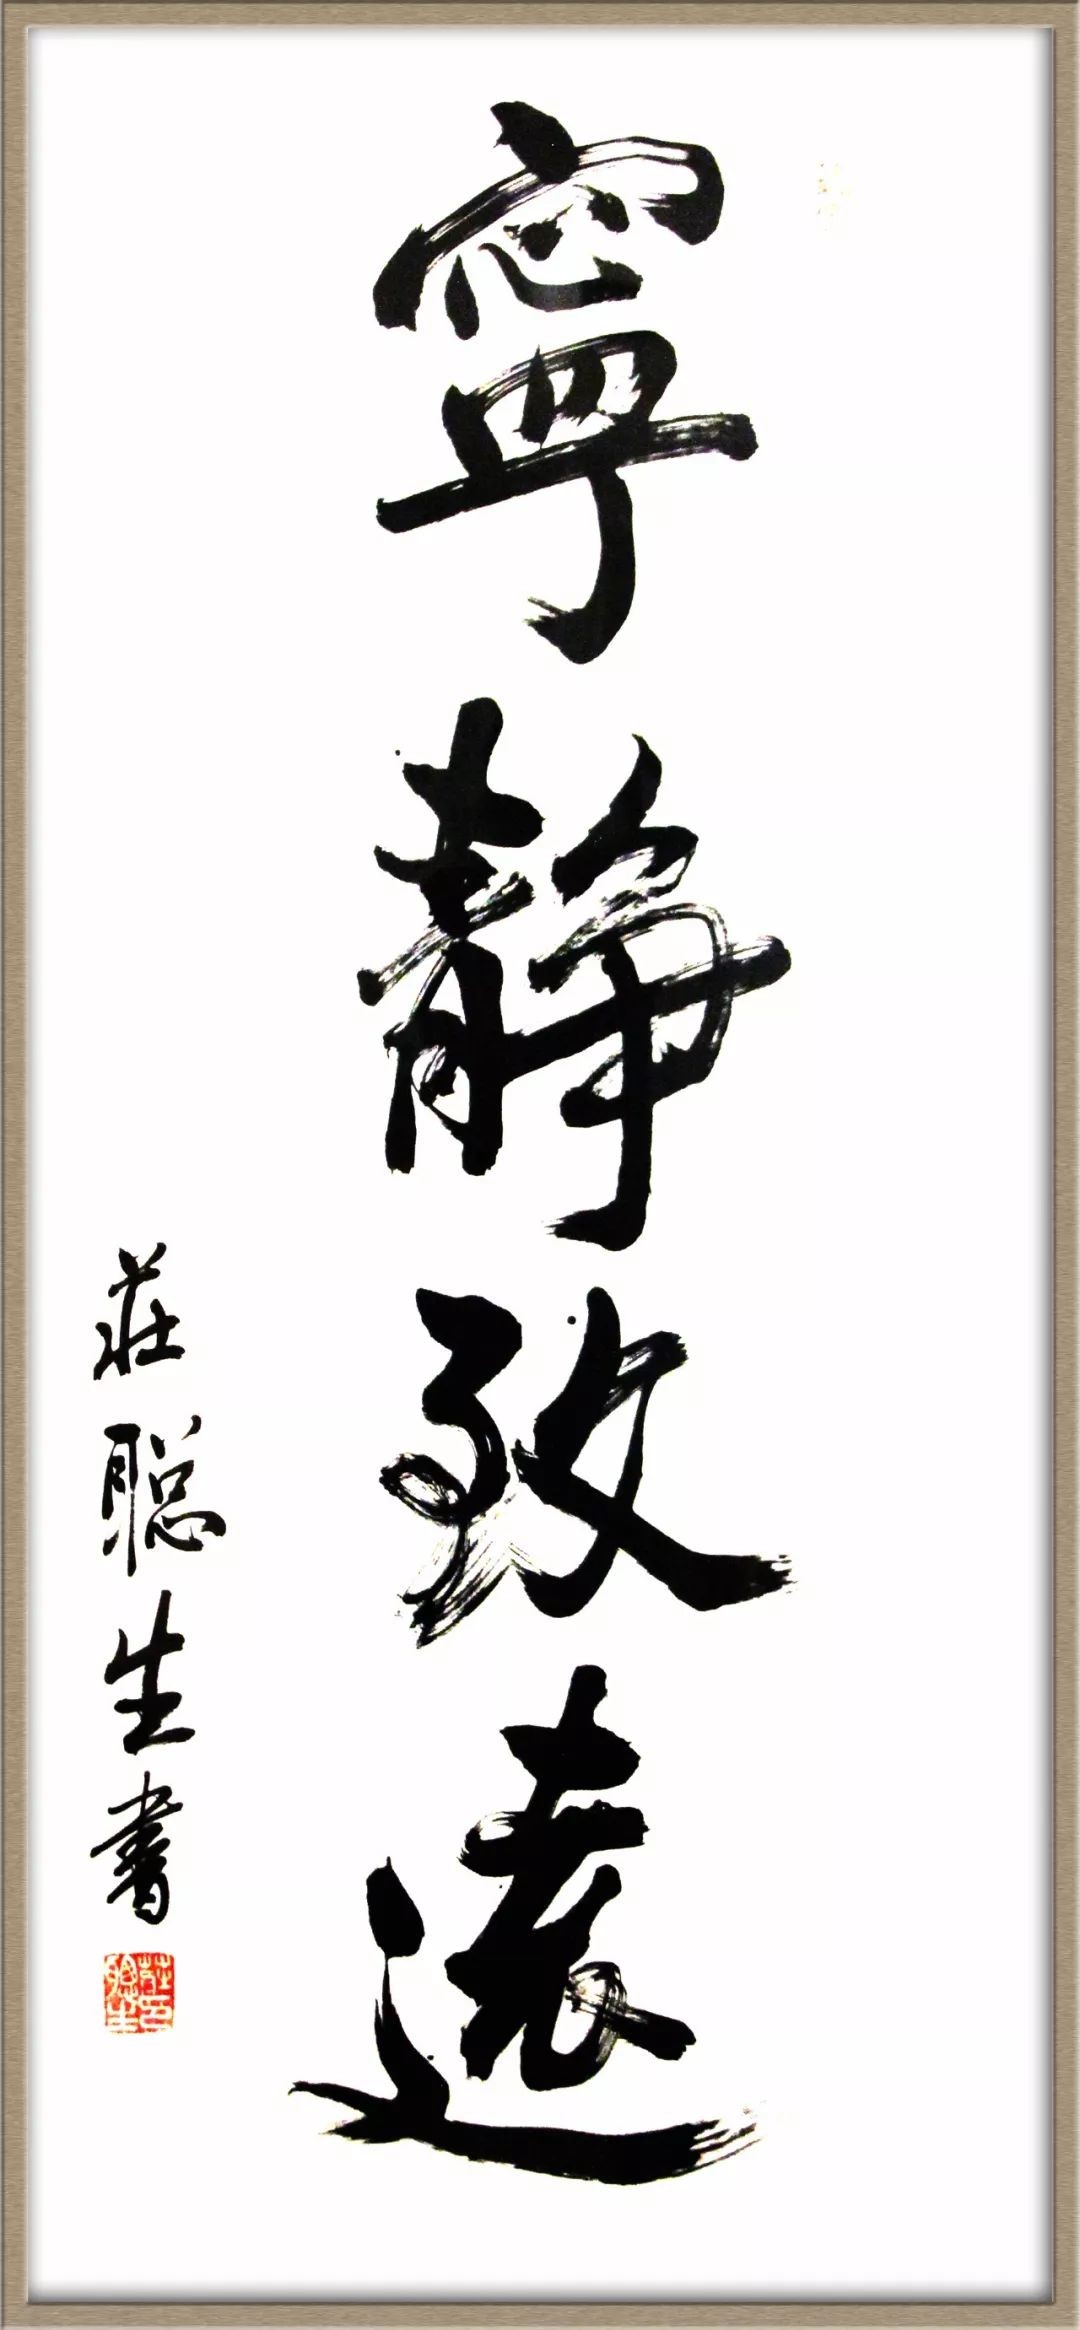 寧靜致遠
莊聰生書